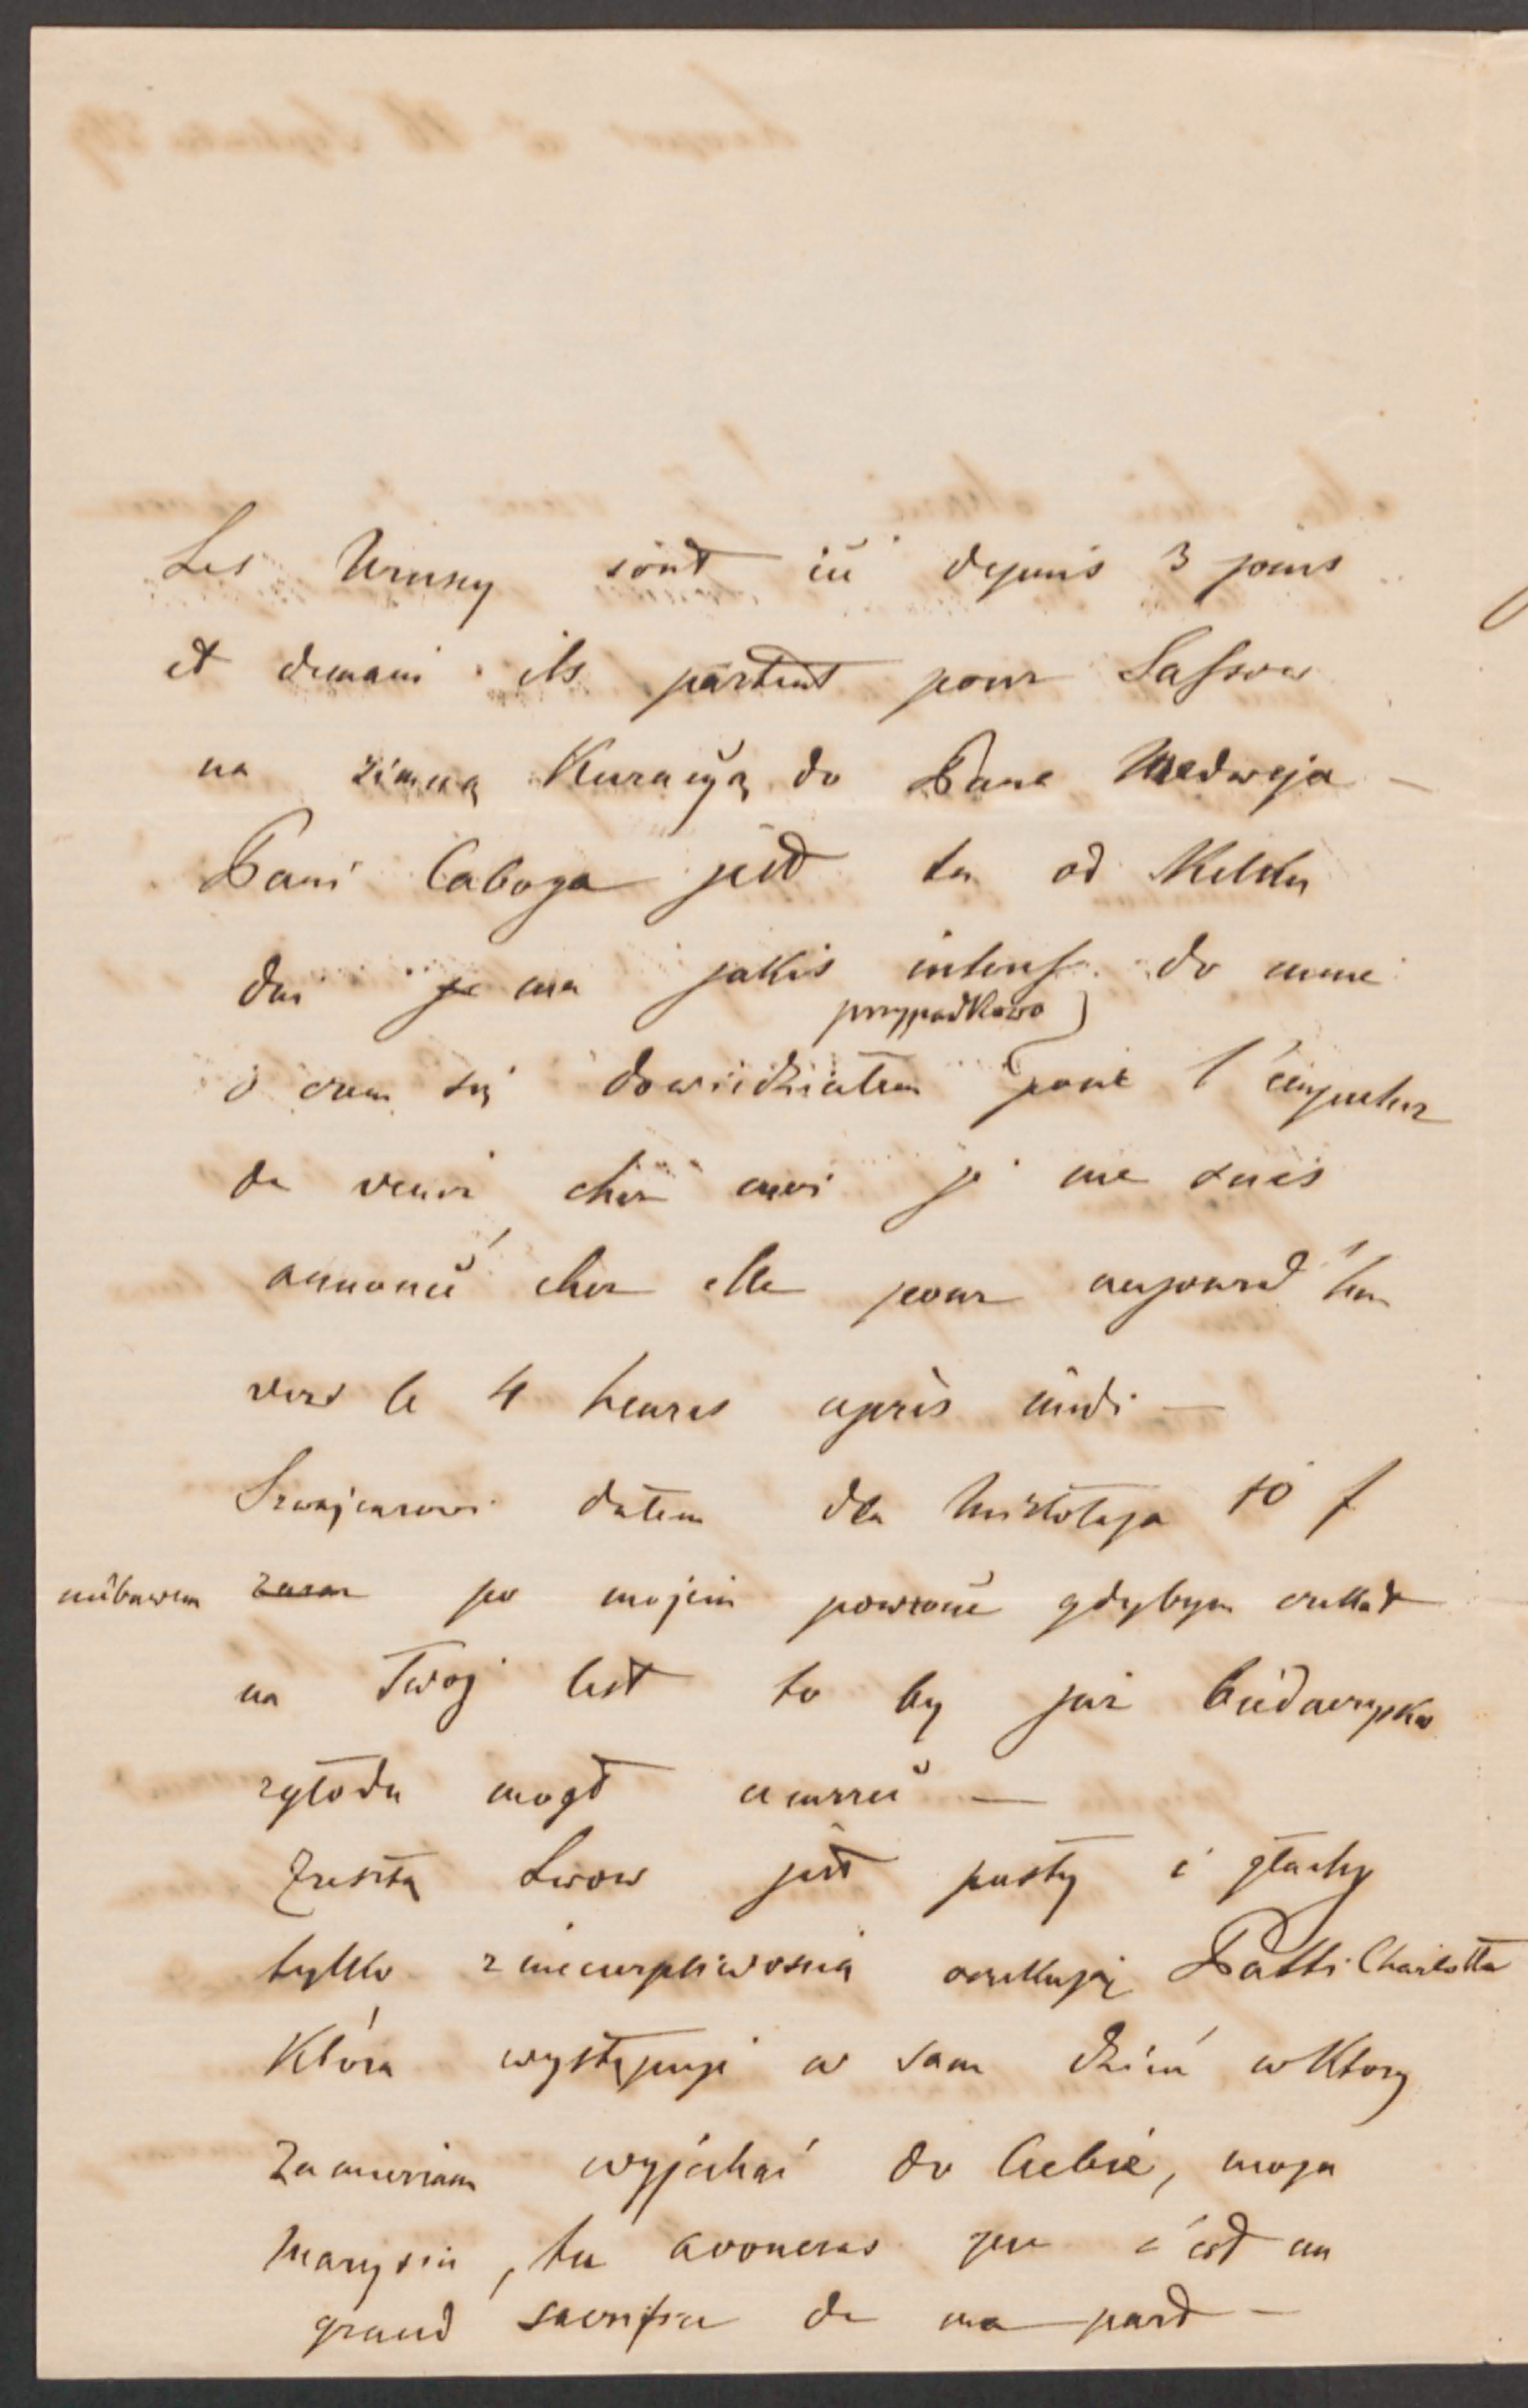 Les Wrusky sont ici depuis 3 jours
et demain ils partent pour Sassow
na zimną Kuracyą do Pana Medweja —
Pani Caboga jest tu od Kilku
dni ma jakiś interess do mnie
przypadkowo
o czem się dowiedziałem pour l'empecher
de venir chez moi je me suis
annoncé chez elle pour aujourd'hui
vers le 4 heures après midi —
Szwajcarowi dałem dla Mikołaja 10 f
niebawem zaraz po mojem powrocie gdybym czekał
na Twoj list to by już biedaczysko
zgłodu mogł umrzeć —
Zresztą Lwow jest pusty i głuchy
tylko z niecierpliwością oczekują Patti Charlotta
Która występuje w sam dzień w Ktory
zamierzam wyjechać do Ciebie, moja
Marysiu, tu avoueras que c'est un
grand sacrifice de ma part —